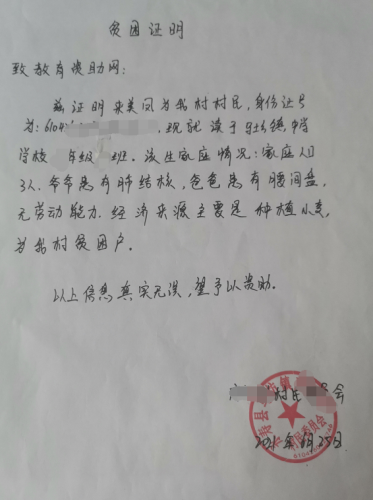 贫困证明
致教育资助网:
兹证明 美凤为我村村民,身份证号
为:6104 ,现就读于 镇中学
学校 年级 班。该生家庭情况:家庭人口
3人,爷爷患有肺结核,爸爸患有腰间盘,
无劳动能力.经济来源主要是种植小麦,
为我村贫困户。
以上信息真实无误,望予以资助.
村民 会
县 镇 村民委员会
20 年 月25日